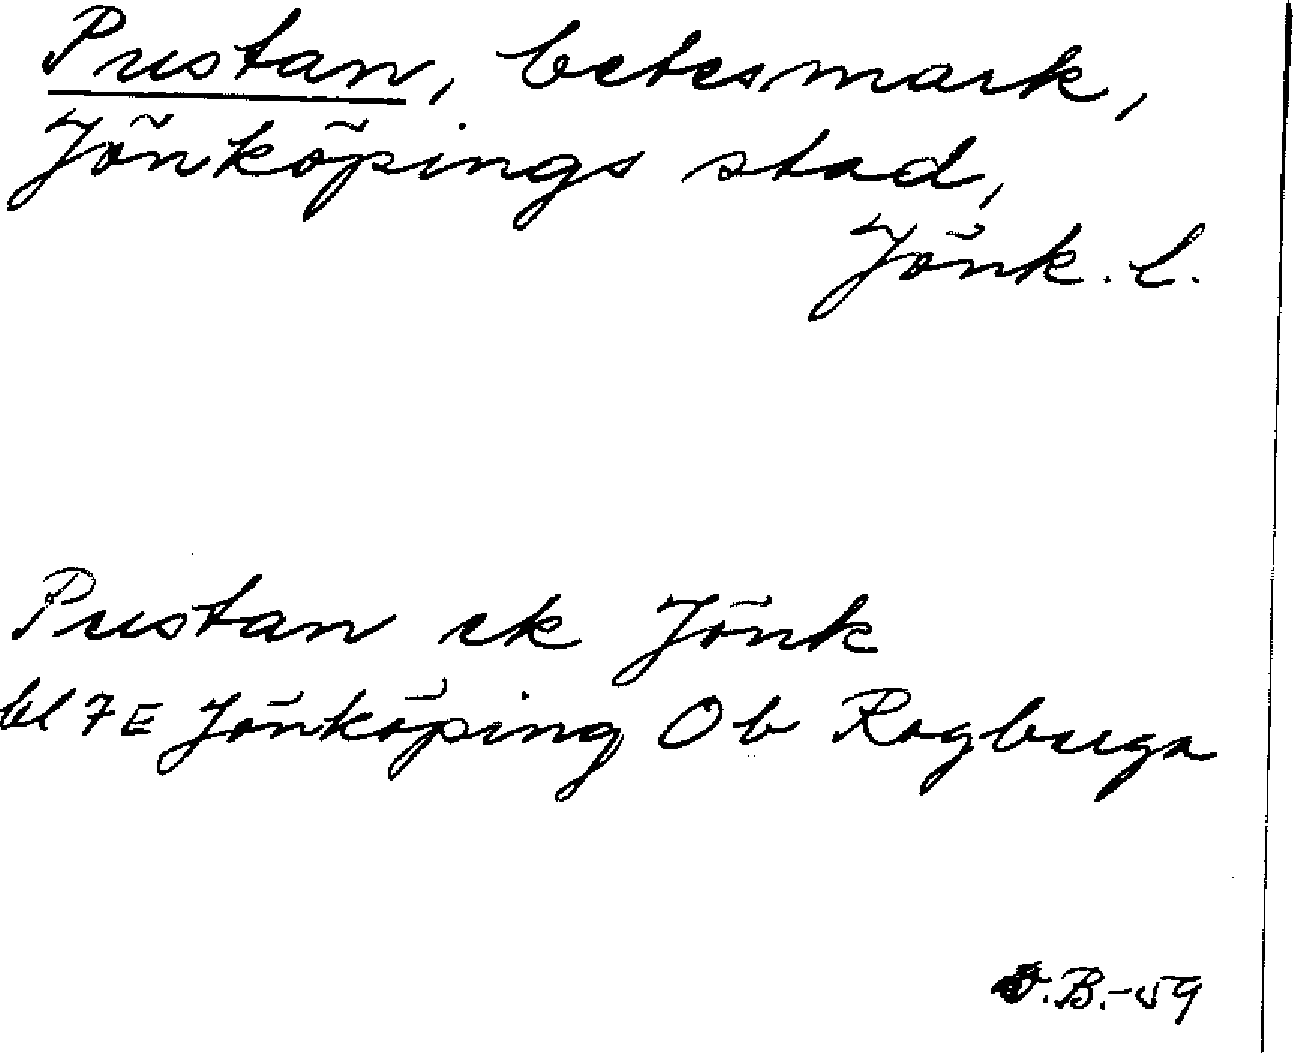 Pustan, betesmark,
Jönköpings stad,
Jönk. l.
Pustan ek Jönk
bl 7E Jönköping Ob Rogberga
B.-59